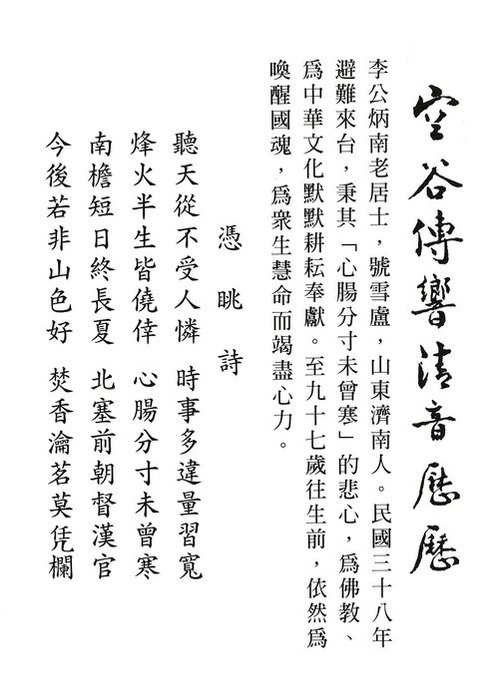 空谷傳響清音歷歷
李公炳南老居士，號雪廬，山東濟南人。民國三十八年
避難來台，秉其「心腸分寸未曾寒」的悲心，為佛教、
為中華文化默默耕耘奉獻。至九十七歲往生前，依然為
喚醒國魂，為眾生慧命而竭盡心力。
憑眺詩
聽天從不受人憐　時事多違量習寬
烽火半生皆僥倖　心腸分寸未曾寒
南檐短日終長夏　北塞前朝督漢官
今後若非山色好　焚香瀹茗莫凭欄